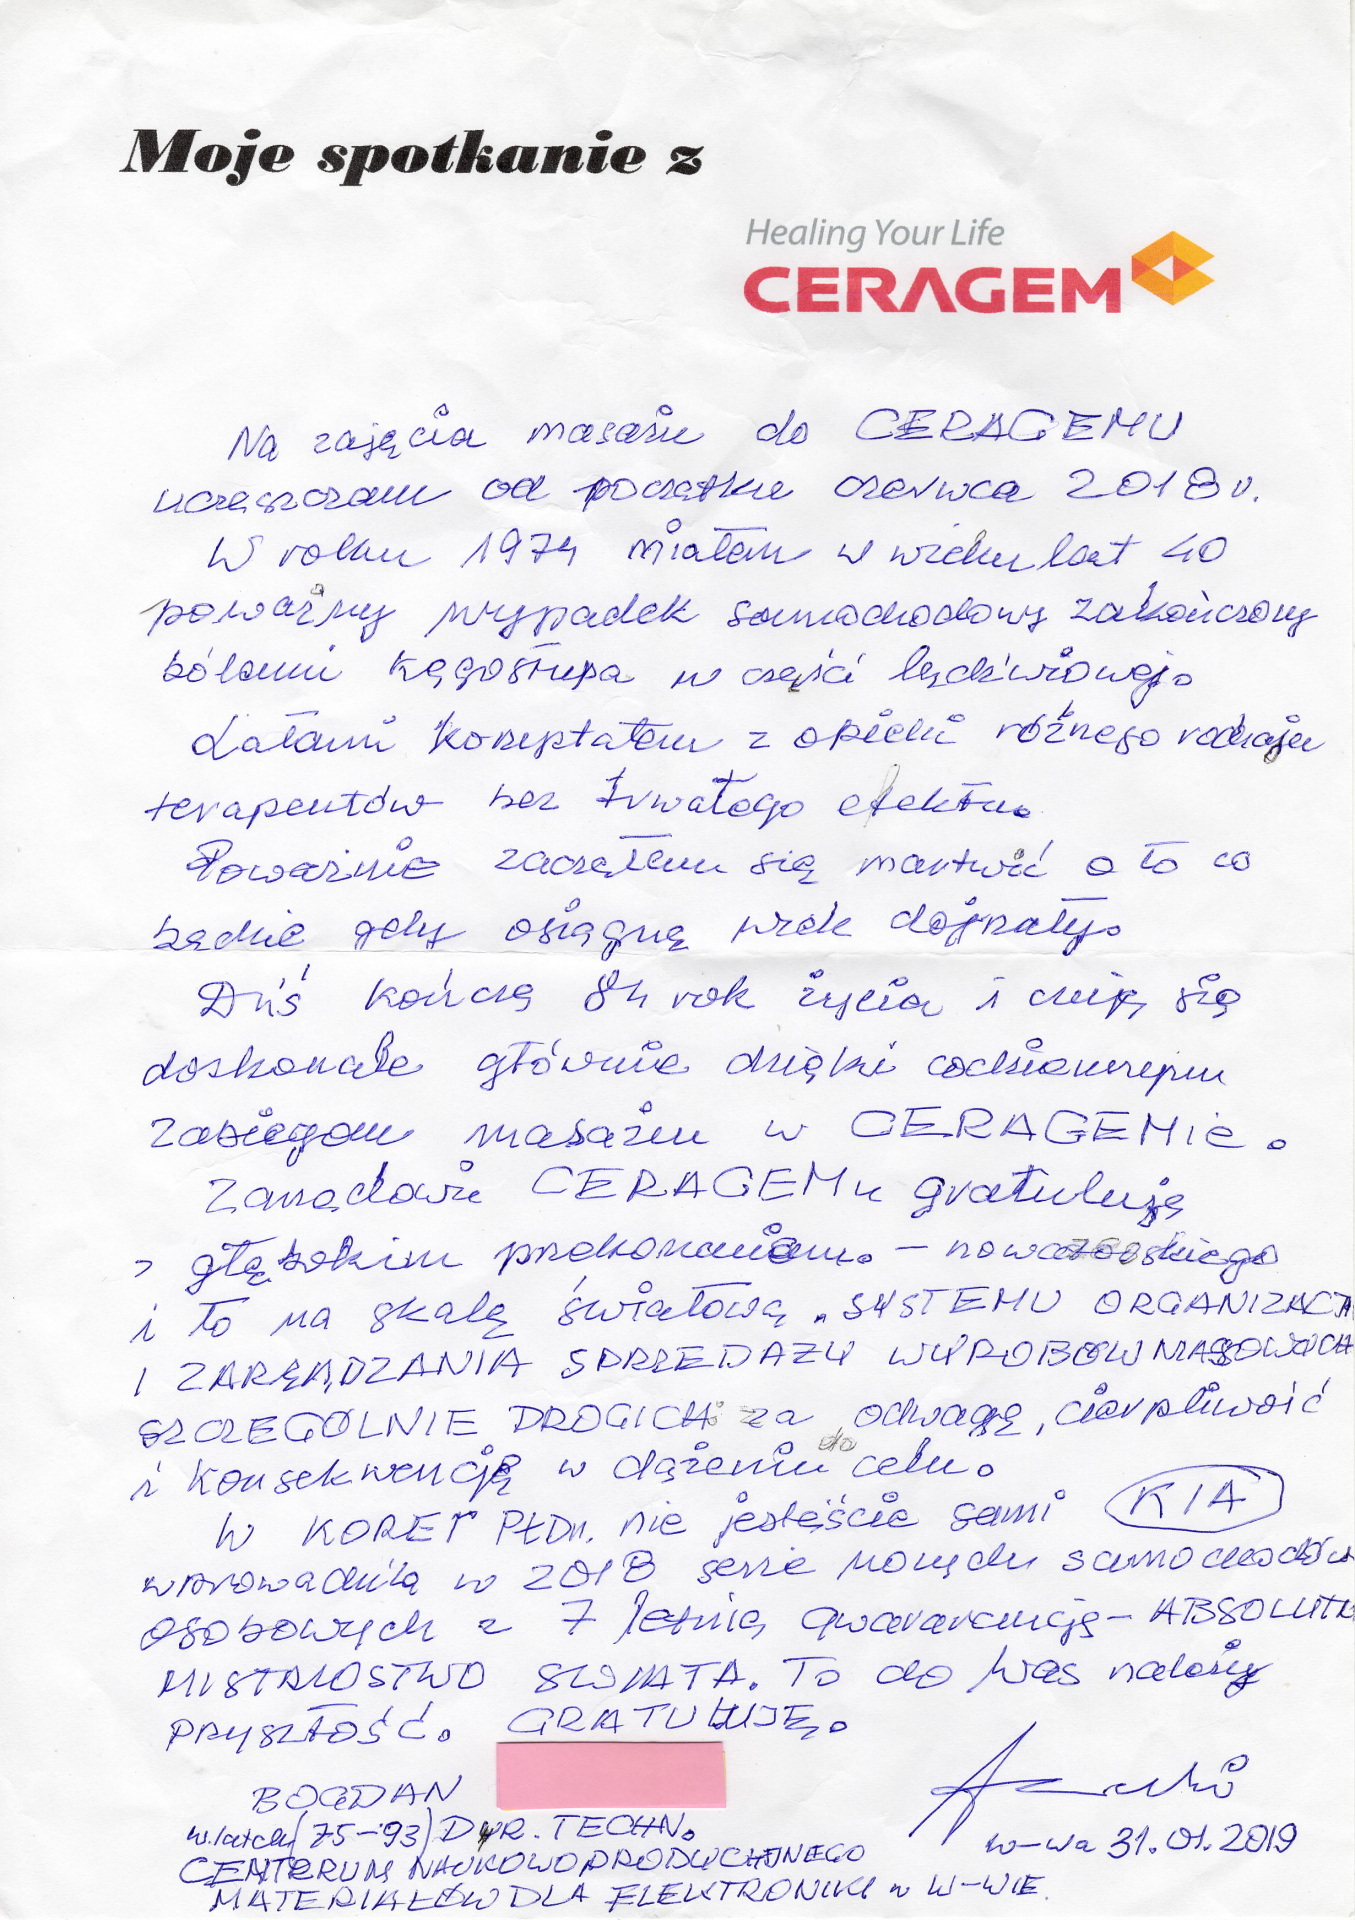 Moje spotkanie z
Healing Your Life
CERAGEM
Na zajęcia masażu do CERAGEMU
uczęszczam od początku czerwca 2018 r.
W roku 1974 miałem w wieku lat 40
poważny wypadek samochodowy zakończony
bólami kęgosłupa w części lędźwiowej.
Latami korzystałem z opieki różnego rodzaju
terapeutów bez trwałego efektu.
Poważnie zacząłem się martwić o to co
będzie gdy osiągnę wiek dojrzały.
Dziś kończę 84 rok życia i czuję się
doskonale głównie dzięki codziennym
zabiegom masażu w CERAGEMie.
Zarządowi CERAGEMu gratuluję
z głębokim przekonaniem. –
i to na skalę światową SYSTEMU ORGANIZACJI
I ZARZĄDZANIA SPRZEDAŻY WYROBÓW MASOWYCH
SZCZEGÓLNIE DROGICH za odwagę, cierpliwość
i konsekwencję w dążeniu do celu.
W KOREI PŁDn. nie jesteście sami KIA
wprowadziła w 2018 serie nowych samochodów
osobowych z 7 letnią gwarancją – ABSOLUTN
MISTRZOSTWO ŚWIATA. To do Was należy
PRZYSZŁOŚĆ. GRATULUJĘ.
BOGDAN
w latach (75–93) DYR. TECHN.
W-wa 31.01.2019
CENTRUM NAUKOWOPRODUKCYJNEGO
MATERIAŁÓW DLA ELEKTRONIKI w W-WIE.